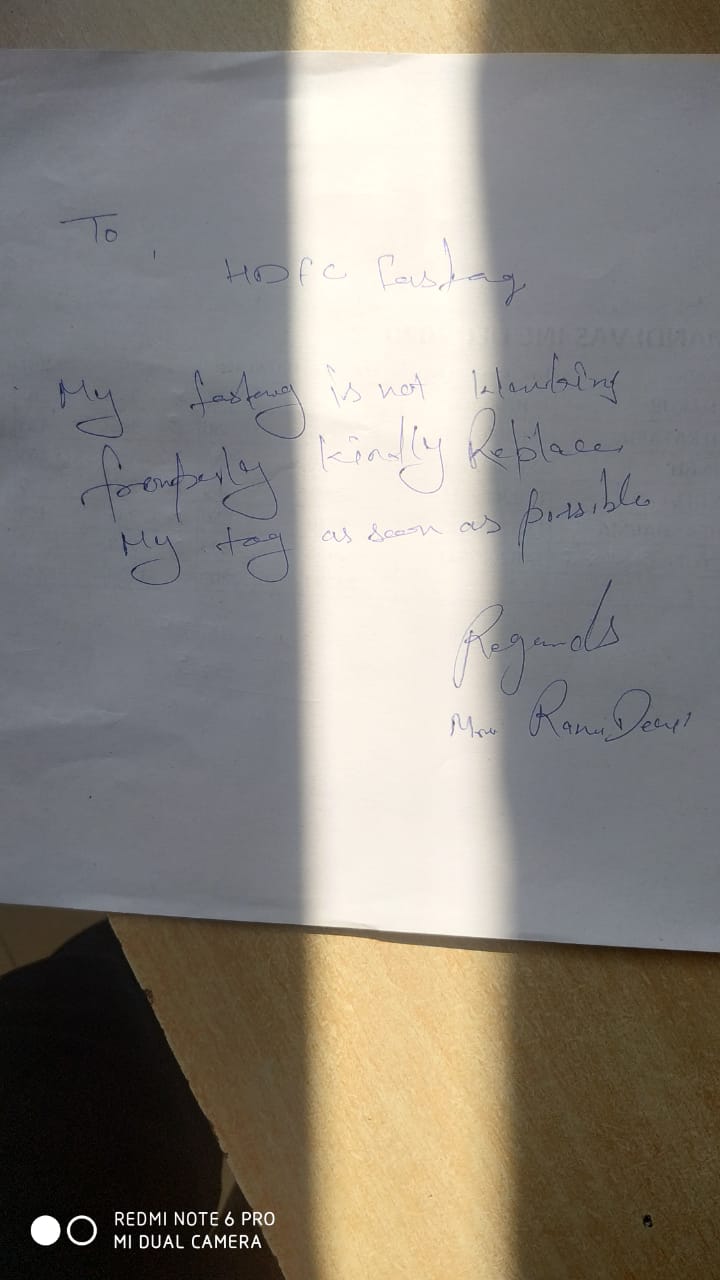 To,
HDFC fastag
My fastag is not
kindly Replace
My tag as soon as possible
Regards
REDMI NOTE 6 PRO
MI DUAL CAMERA